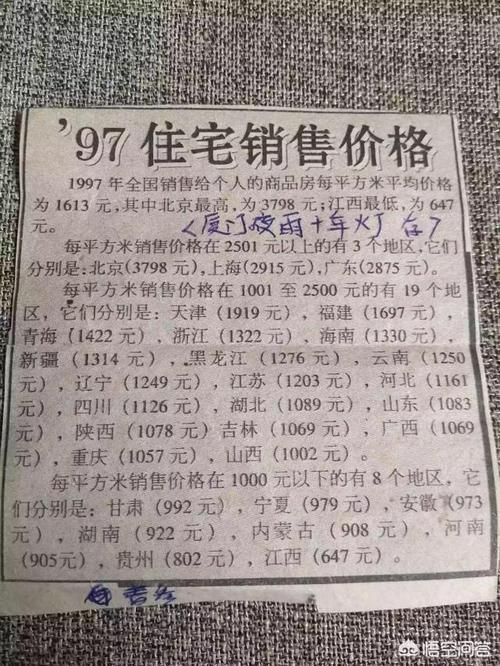 '97 住宅销售价格
1997 年全国销售给个人的商品房每平方米平均价格
为 1613 元,其中北京最高,为 3798 元;江西最低,为 647
元。
每平方米销售价格在 2501 元以上的有 3 个地区,它们
分别是:北京(3798 元),上海(2915 元),广东(2875 元)。
每平方米销售价格在 1001 至 2500 元的有 19 个地
区，它们分别是：天津（1919 元），福建（1697 元），
青海（1422 元），浙江（1322 元），海南（1330 元），
新疆（1314 元），黑龙江（1276 元），云南（1250
元），辽宁（1249 元），江苏（1203 元），河北（1161
元），四川（1126 元），湖北（1089 元），山东（1083
元），陕西（1078 元）吉林（1069 元），广西（1069
元），重庆（1057 元），山西（1002 元）。
每平方米销售价格在 1000 元以下的有 8 个地区，它
们分别是：甘肃（992 元），宁夏（979 元），安徽（973
元），湖南（922 元），内蒙古（908 元），河南
(905元)，贵州（802 元），江西（647 元）。
悟空问答